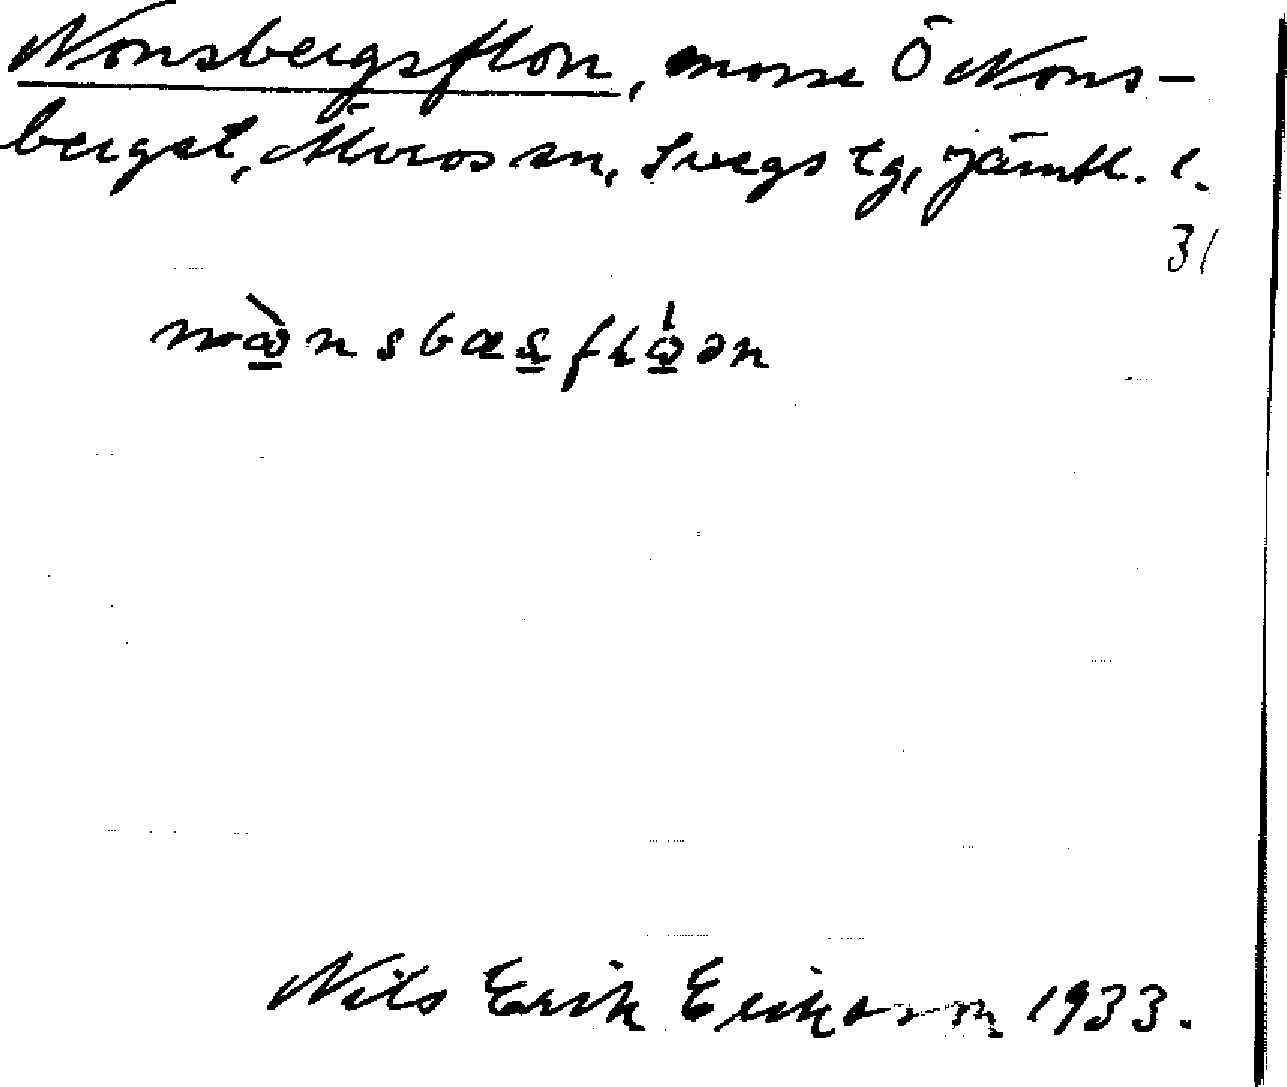 Nonsbergsflon, mosse Ö Nons-
berget, Älvros sn, Svegs tg, Jämtl. l.
31
nò̲nsbæs̲flò̲ən
Nils Erik Erikson 1933.